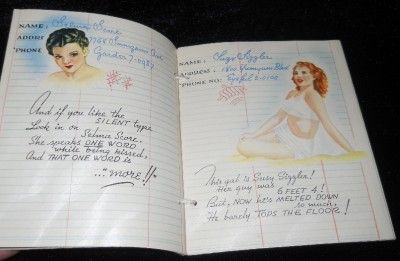 NAME: Selmia Score
ADDRE
PHONE Garden 7-0987
And if you like the
SILENT type
Look in on
Selmia Score.
She speaks ONE WORD!
while being kissed,
And THAT ONE WORD is
..."more!!"
NAME: Suzy Sizzler
ADDRESS: 1800 Blvd
PHONE NO:
This gal is Suzy Sizzler!
Her guy was
6 FEET 4!
But, NOW he's MELTED DOWN
so much,
He barely TOPS THE FLOOR!